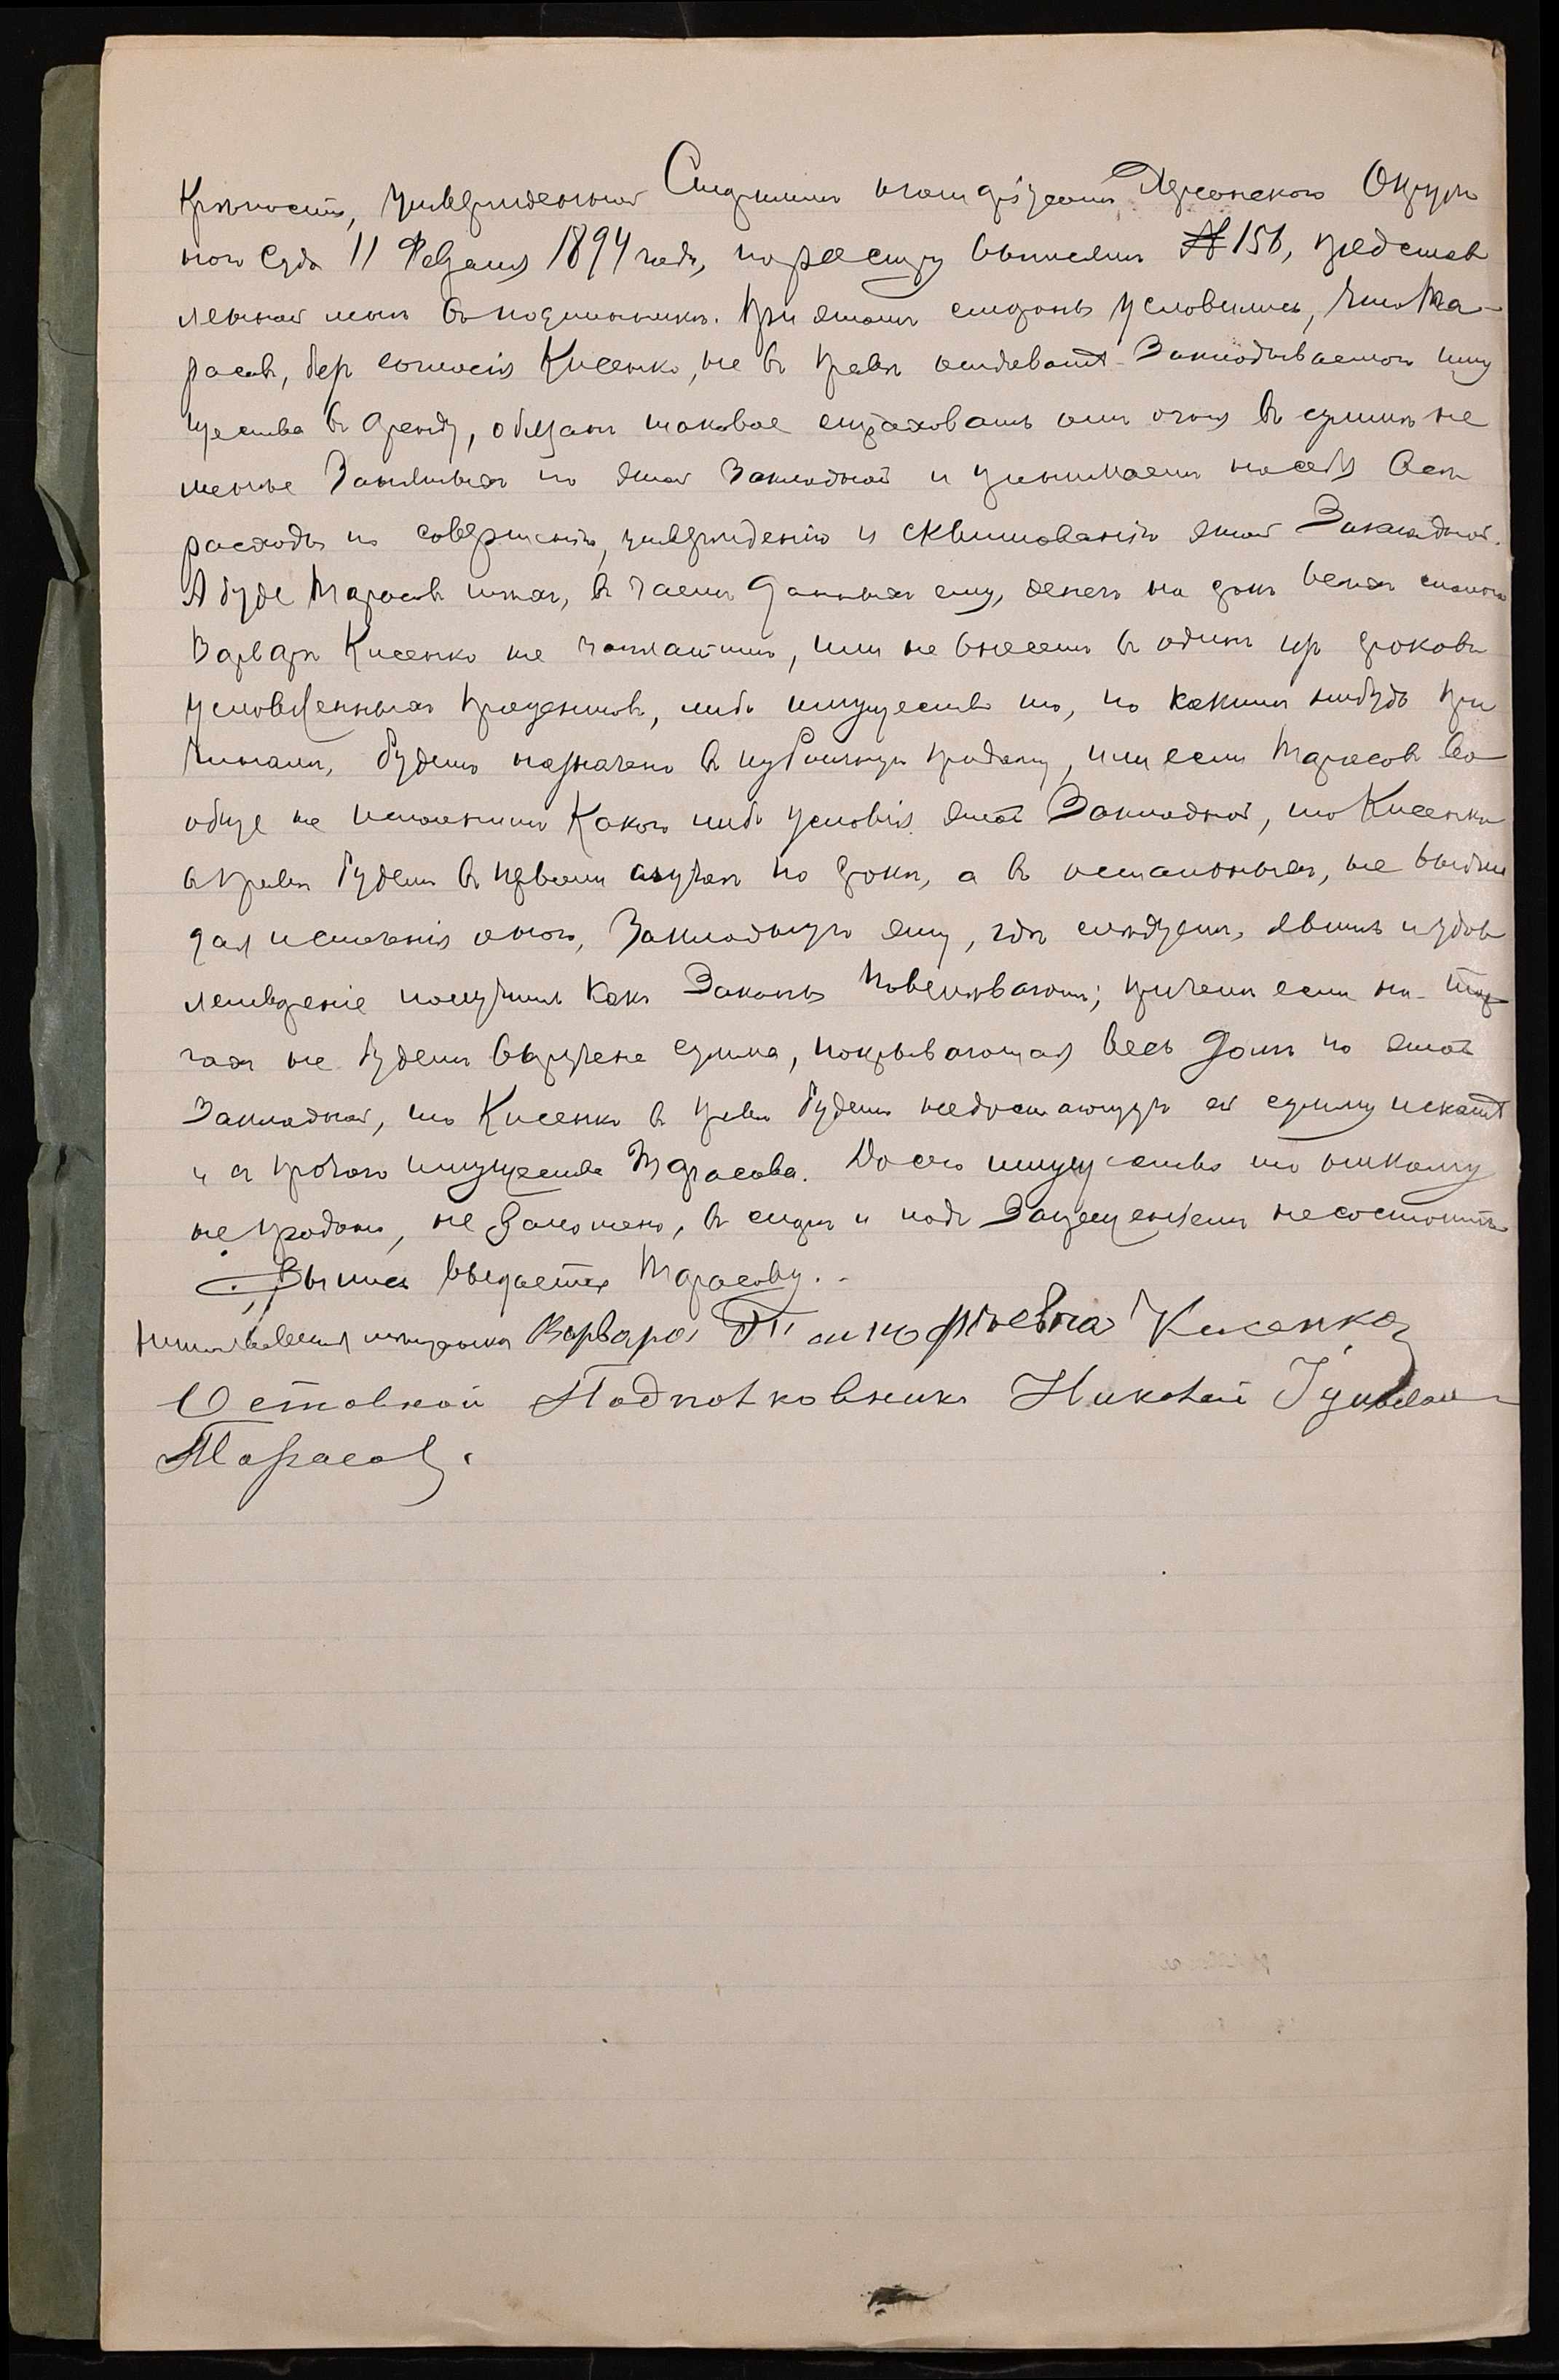 Крѣпости, утвержденной Старшимъ нотаріусомъ Херсонскаго Окруж
ного Суда 11 Февраля 1894 года, по реестру выписямъ № 156, представ
ленной мнѣ въ подлинникѣ. При этомъ стороны условились, что Та-
расовъ, безъ согласія Кисенко, не въ правѣ отдавать закладываемого иму
щества въ аренду, обязанъ таковое страховать отъ огня въ суммѣ не
менѣе занятыхъ по этой закладной и принимаетъ на себя всѣ
расходы по совершенію, утвержденію и сквитованію этой Закладной.
А буде Тарасовъ тѣхъ, въ заемъ данныхъ ему, денегъ на срокъ всѣхъ сполна
Варварѣ Кисенко не заплатитъ, или не внесетъ въ одинъ изъ сроковъ
условленныхъ процентовъ, либо имущество то, по какимъ нибудь при
чинамъ, будетъ назначено въ публичную продажу, или если Тарасовъ во
обще не исполнитъ какого либо условія этой Закладной, то Кисенко
въ правѣ будетъ въ первомъ случаѣ по срокѣ, а въ остальныхъ, не выжи
дая истеченія оного, Закладную эту, гдѣ слѣдуетъ, явить и удов
летвореніе получить какъ Законы повелѣваютъ; причемъ если на тор
гахъ не будетъ выручена сумма, покрывающая весь долгъ по этой
Закладной, то Кисенко въ правѣ будетъ недостающую ей сумму искать
и съ прочаго имущества Тарасова. До сего имущество то никому
не продано, не заложено, въ спорѣ и подъ запрещеніемъ не состоитъ
Выпись выдается Тарасову.
Николаевская мѣщанка Варвара Панкофьевна Кисенко
Оставной Подполковникъ Николай
Тарасовъ.